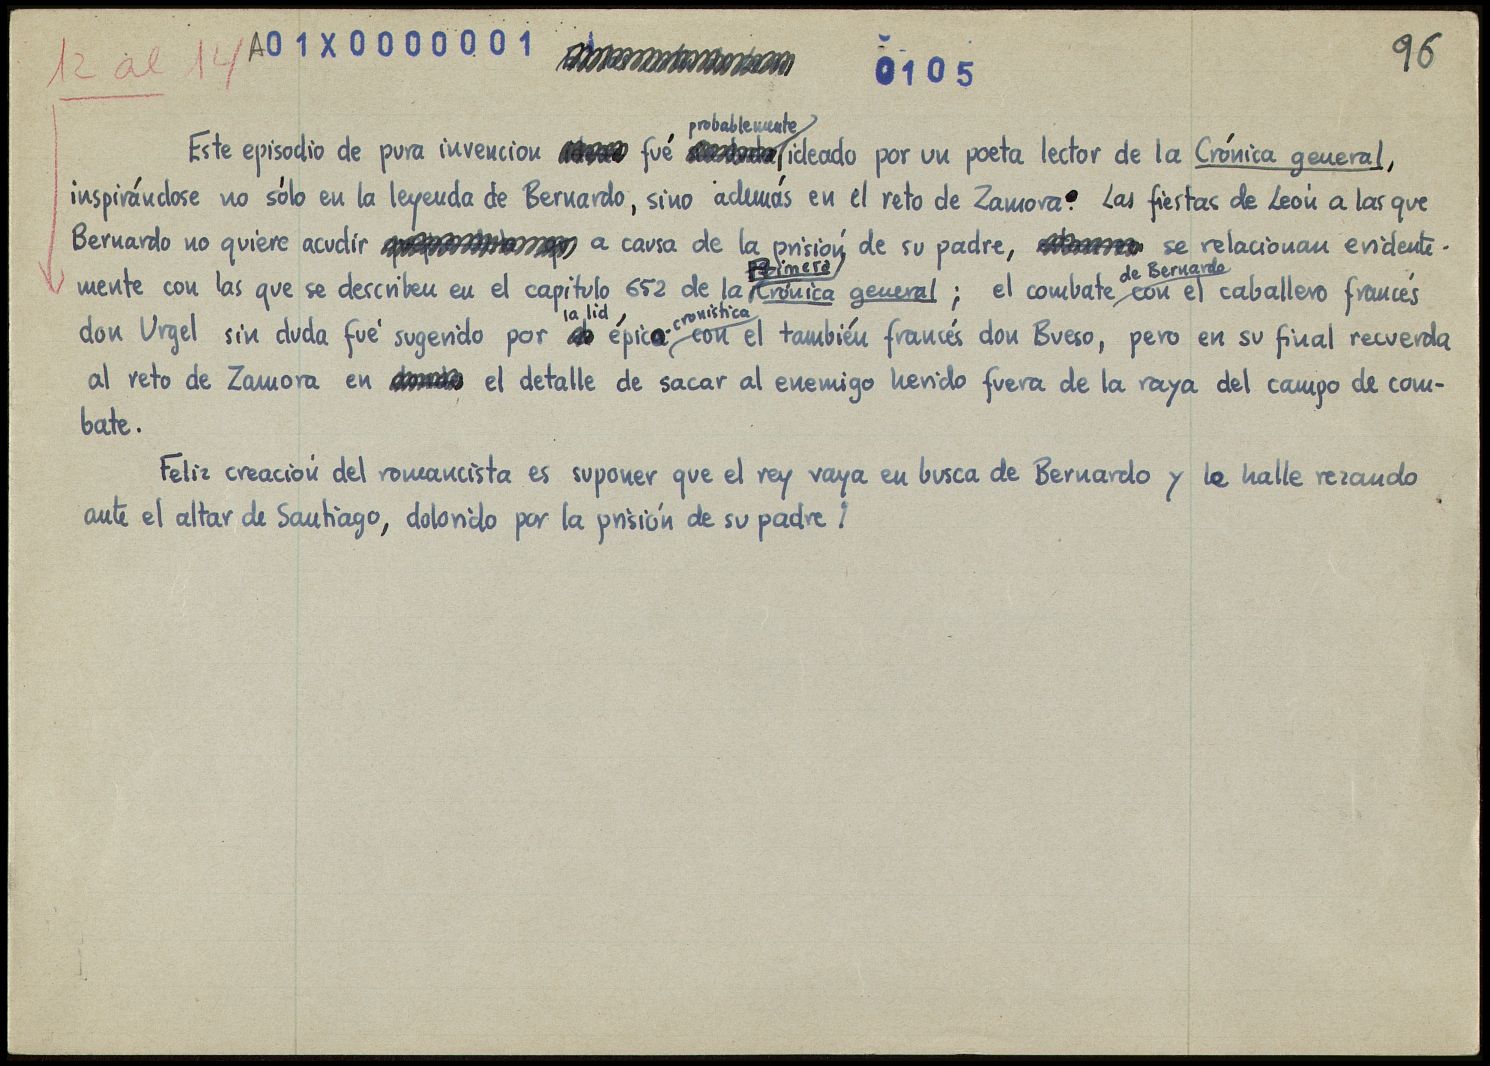 12 al 14 A01X0000001 0105 96
Este episodio de pura invencion fué probablemente ideado por un poeta lector de la Crónica general,
inspirándose no sólo en la leyenda de Bernardo, sino además en el reto de Zamora. Las fiestas de León a las que
Bernardo no quiere acudir a causa de la prisión de su padre, se relacionan evidente-
mente con las que se describen en el capítulo 652 de la Primera Crónica general; el combate de Bernardo con el caballero francés
don Urgel sin duda fué sugerido por la lid épico-cronística con el también francés don Bueso, pero en su final recuerda
al reto de Zamora en el detalle de sacar al enemigo herido fuera de la raya del campo de com-
bate.
Feliz creación del romancista es suponer que el rey vaya en busca de Bernardo y le halle rezando
ante el altar de Santiago, dolorido por la prisión de su padre.